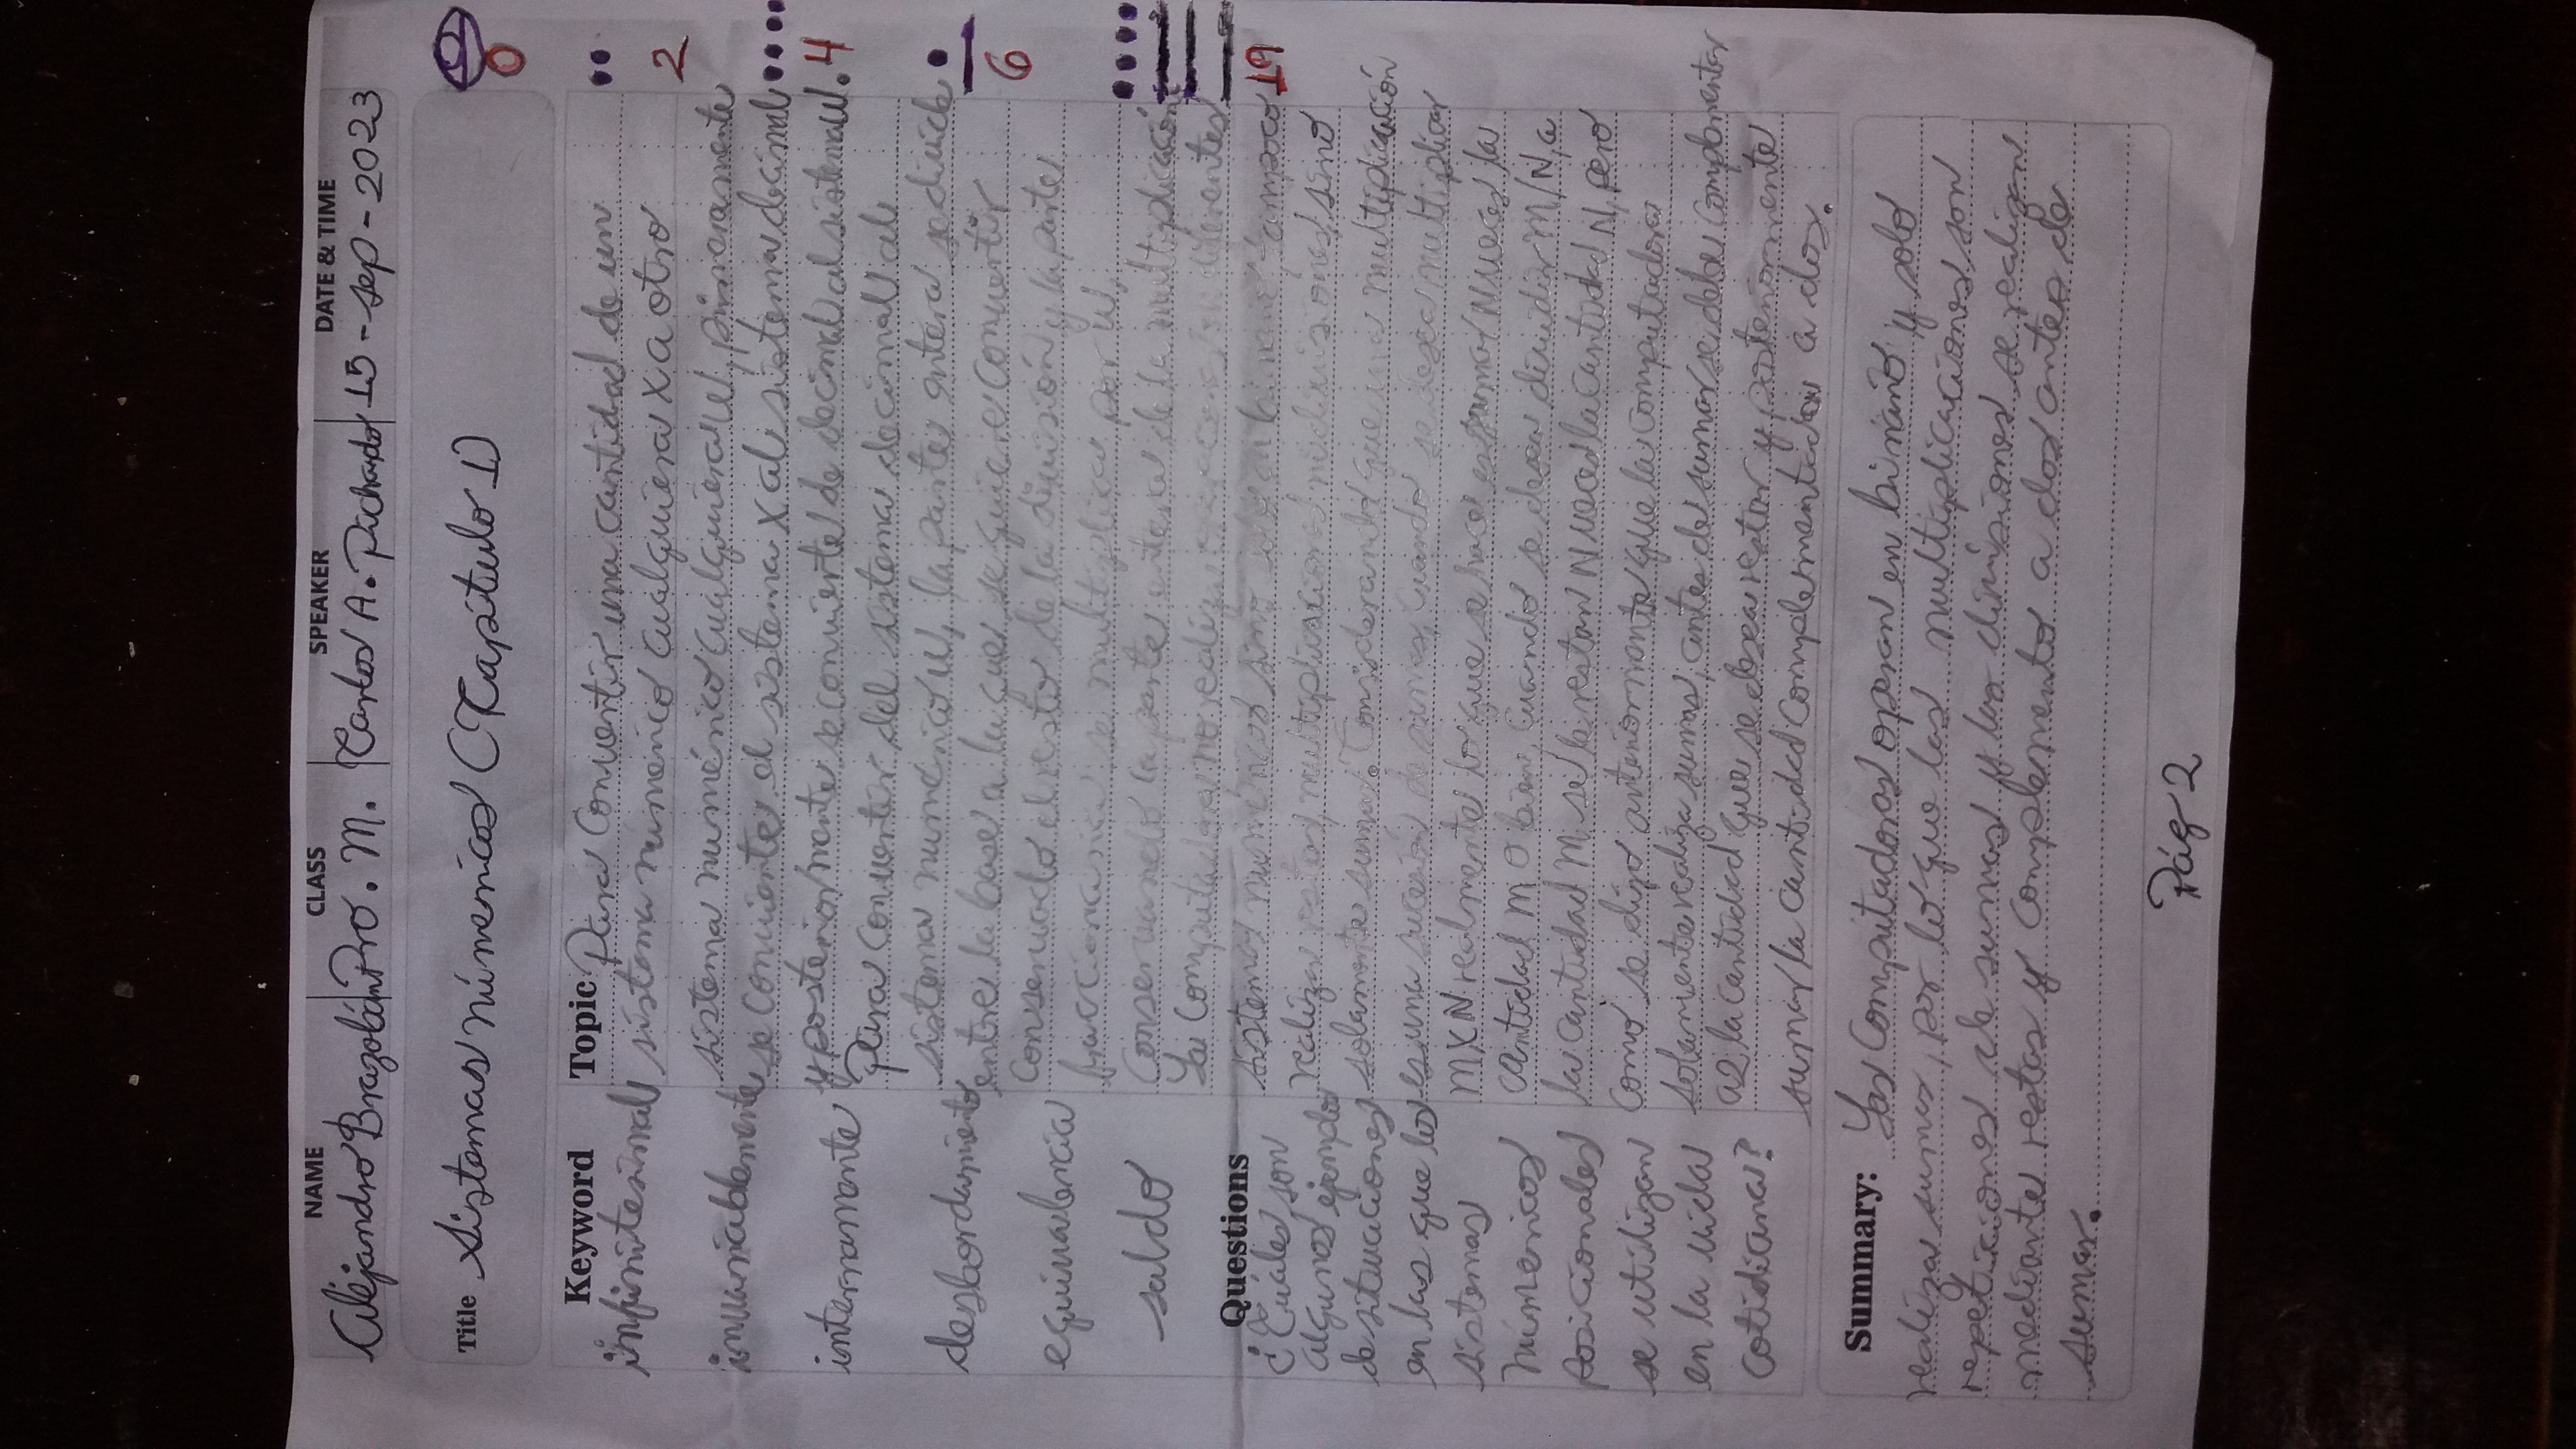 NAME CLASS SPEAKER DATE & TIME
Alejandro Brazobán Pro. M. Carlos A. Pichardo 15-sep-2023
Title Sistemas númericos (Capítulo 1)
0
Keyword
infinitesimal
invariablemente
internamente
desbordamiento
equivalencia
saldo
Questions
¿Cuáles son
algunos ejemplos
de situaciones
en las que los
sistemas
númericos
posicionales
se utilizan
en la vida
cotidiana?
Topic Para convertir una cantidad de un
sistema númerico cualquiera X a otro
sistema numérico cualquiera W, primeramente
se convierte el sistema X al sistema decimal
y posteriormente se convierte de decimal al sistema W.
Para convertir del sistema decimal al
sistema numérico W, la parte entera se divide
entre la base a la que se quiere convertir
conservado el resto de la división y la parte
fraccionaria se multiplica por W,
conservando la parte entera de la multiplicación
La computadora no realiza operaciones en diferentes
sistemas numéricos sino solo en binario, tampoco
realiza restas, multiplicaciones ni divisiones, sino
solamente sumas. Considerando que una multiplicación
es una sucesión de sumas, cuando se desea multiplicar
MXN realmente lo que se hace es sumar N veces la
cantidad M O bien, cuando se desea dividir M/N, a
la cantidad M se le restan N veces la cantidad N, pero
como se dijo anteriormente que la computadora
solamente realiza sumas, antes de sumar se debe complementar
a 2 la cantidad que se desea restar y posteriormente
sumar la cantidad complementada a dos.
2
4
6
19
Summary: Las computadoras operan en binario y solo
realiza sumas, por lo que las multiplicaciones son
repeticiones de sumas y las divisiones se realizan
mediante restas y complemento a dos antes de
sumar.
Pág 2